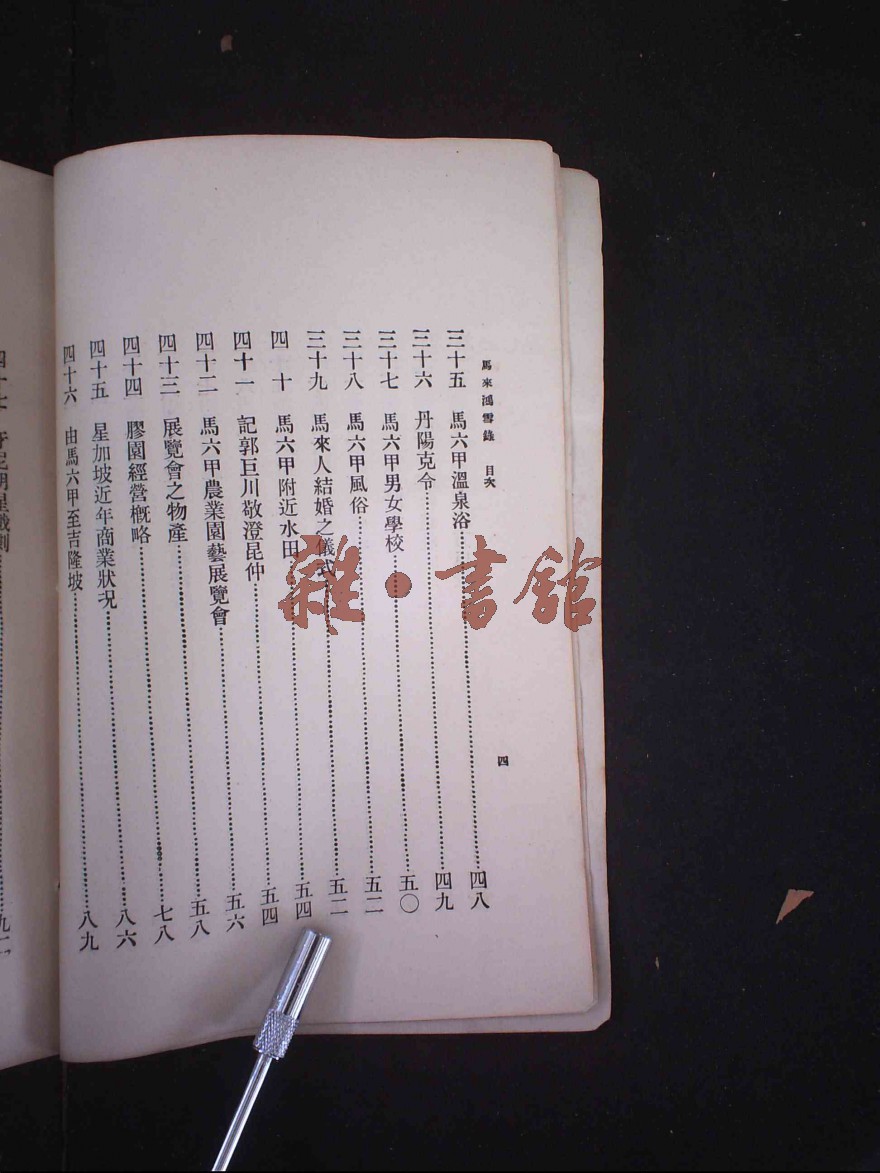 馬來鴻雪錄 目次 四
三十五 馬六甲溫泉浴 四八
三十六 丹陽克令 四九
三十七 馬六甲男女學校 五〇
三十八 馬六甲風俗 五二
三十九 馬來人結婚之儀式 五二
四十 馬六甲附近水田 五四
四十一 記郭巨川敬澄昆仲 五四
四十二 馬六甲農業園藝展覽會 五六
四十三 展覽會之物產 五八
四十四 膠園經營概略 七八
四十五 星加坡近年商業狀況 八六
四十六 由馬六甲至吉隆坡 八九
雜·書館